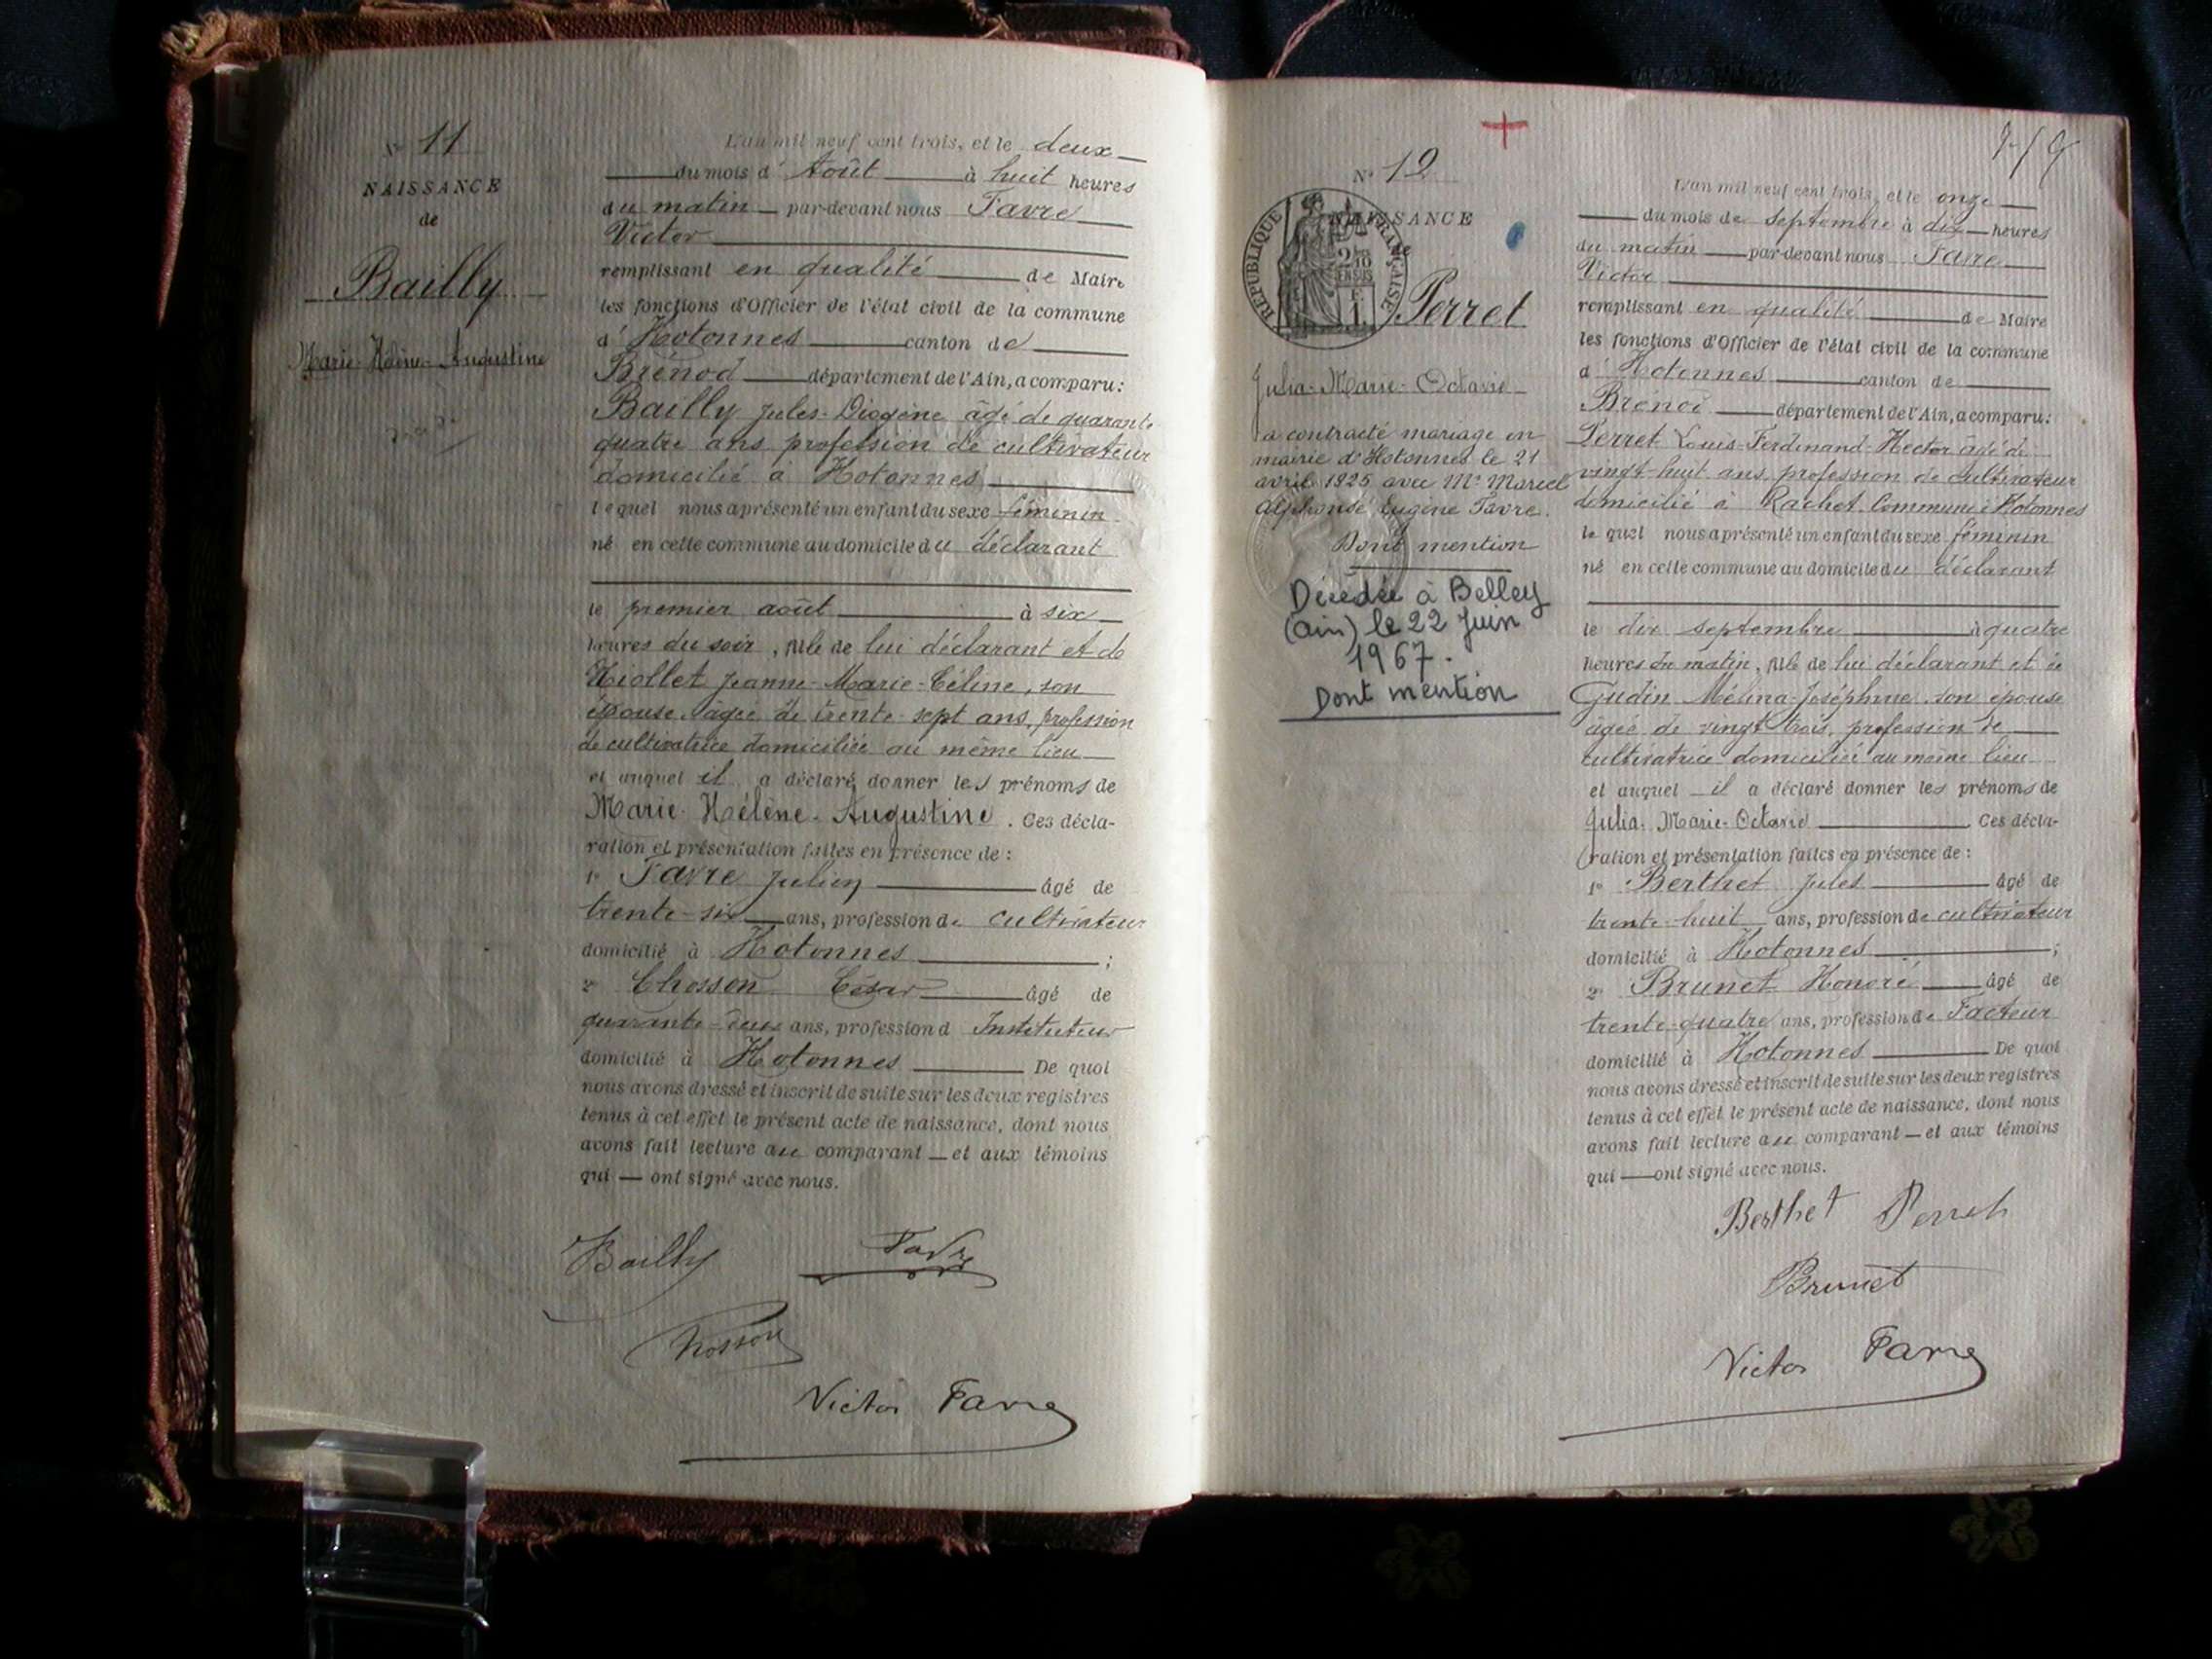 N° 11
NAISSANCE
de
Bailly
Marie-Hélène-Augustine
L'an mil neuf cent trois, et le deux
du mois d'Août à huit heures
du matin par-devant nous Favre
Victor
remplissant en qualité de Maire
les fonctions d'Officier de l'état civil de la commune
d'Hotonnes canton de
Brénod département de l'Ain, a comparu:
Bailly Jules-Diogène âgé de quarante
quatre ans profession de cultivateur
domicilié à Hotonnes
lequel nous a présenté un enfant du sexe féminin
né en cette commune au domicile du déclarant
le premier août à six
heures du soir, fille de lui déclarant et de
Jeanne-Marie-Céline, son
épouse âgée de trente sept ans, profession
de cultivatrice domiciliée au même lieu
et auquel il a déclaré donner les prénoms de
Marie-Hélène-Augustine. Ces décla-
ration et présentation faites en présence de:
1° Favre Julien âgé de
trente-six ans, profession de cultivateur
domicilié à Hotonnes;
2° Chosson César âgé de
quarante-deux ans, profession d'Instituteur
domicilié à Hotonnes De quoi
nous avons dressé et inscrit de suite sur les deux registres
tenus à cet effet le présent acte de naissance, dont nous
avons fait lecture au comparant et aux témoins
qui ont signé avec nous.
Bailly Favre
Chosson
Victor Favre
N° 12
NAISSANCE
RÉPUBLIQUE FRANÇAISE
2/10 EN SUS
Perret
Julia-Marie-Octavie
a contracté mariage en
mairie d'Hotonnes le 21
avril 1925 avec Mr Marcel
Alphonse Eugène Favre.
Dont mention
Décédée à Belley
(Ain) le 22 Juin
1967.
Dont mention
L'an mil neuf cent trois, et le onze
du mois de septembre à dix heures
du matin par-devant nous Favre
Victor
remplissant en qualité de Maire
les fonctions d'Officier de l'état civil de la commune
d'Hotonnes canton de
Brénod département de l'Ain, a comparu:
Perret Louis-Ferdinand-Hector âgé de
vingt-huit ans, profession de cultivateur
domicilié à Rachet Commune d'Hotonnes
lequel nous a présenté un enfant du sexe féminin
né en cette commune au domicile du déclarant
le dix septembre à quatre
heures du matin, fille de lui déclarant et de
Gudin Mélina-Joséphine, son épouse
âgée de vingt trois, profession de
cultivatrice domiciliée au même lieu
et auquel il a déclaré donner les prénoms de
Julia-Marie-Octavie Ces décla-
ration et présentation faites en présence de:
1° Berthet Jules âgé de
trente-huit ans, profession de cultivateur
domicilié à Hotonnes;
2° Brunet Honoré âgé de
trente-quatre ans, profession de Facteur
domicilié à Hotonnes De quoi
nous avons dressé et inscrit de suite sur les deux registres
tenus à cet effet le présent acte de naissance, dont nous
avons fait lecture au comparant et aux témoins
qui ont signé avec nous.
Berthet Perret
Brunet
Victor Favre